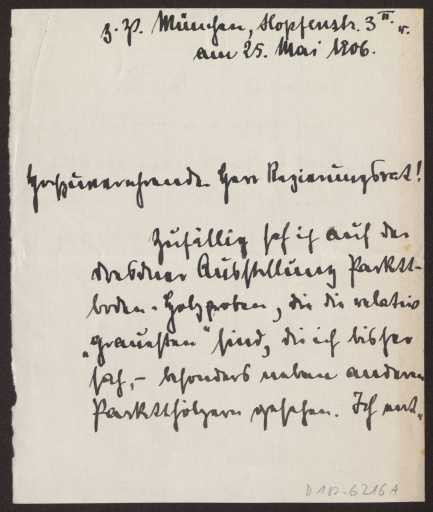 z. Z. München, Hopfenstr. 3 II. r.
am 25. Mai 1906.
Hochzuverehrender Herr Regierungsrat!
Zufällig sah ich auf der
Dresdner Ausstellung Parkett-
boden-Holzproben, die die relativ
„grauesten“ sind, die ich bisher
sah, – besonders neben anderen
Parketthölzern gesehen. Ich ent-
D 102-6216 A